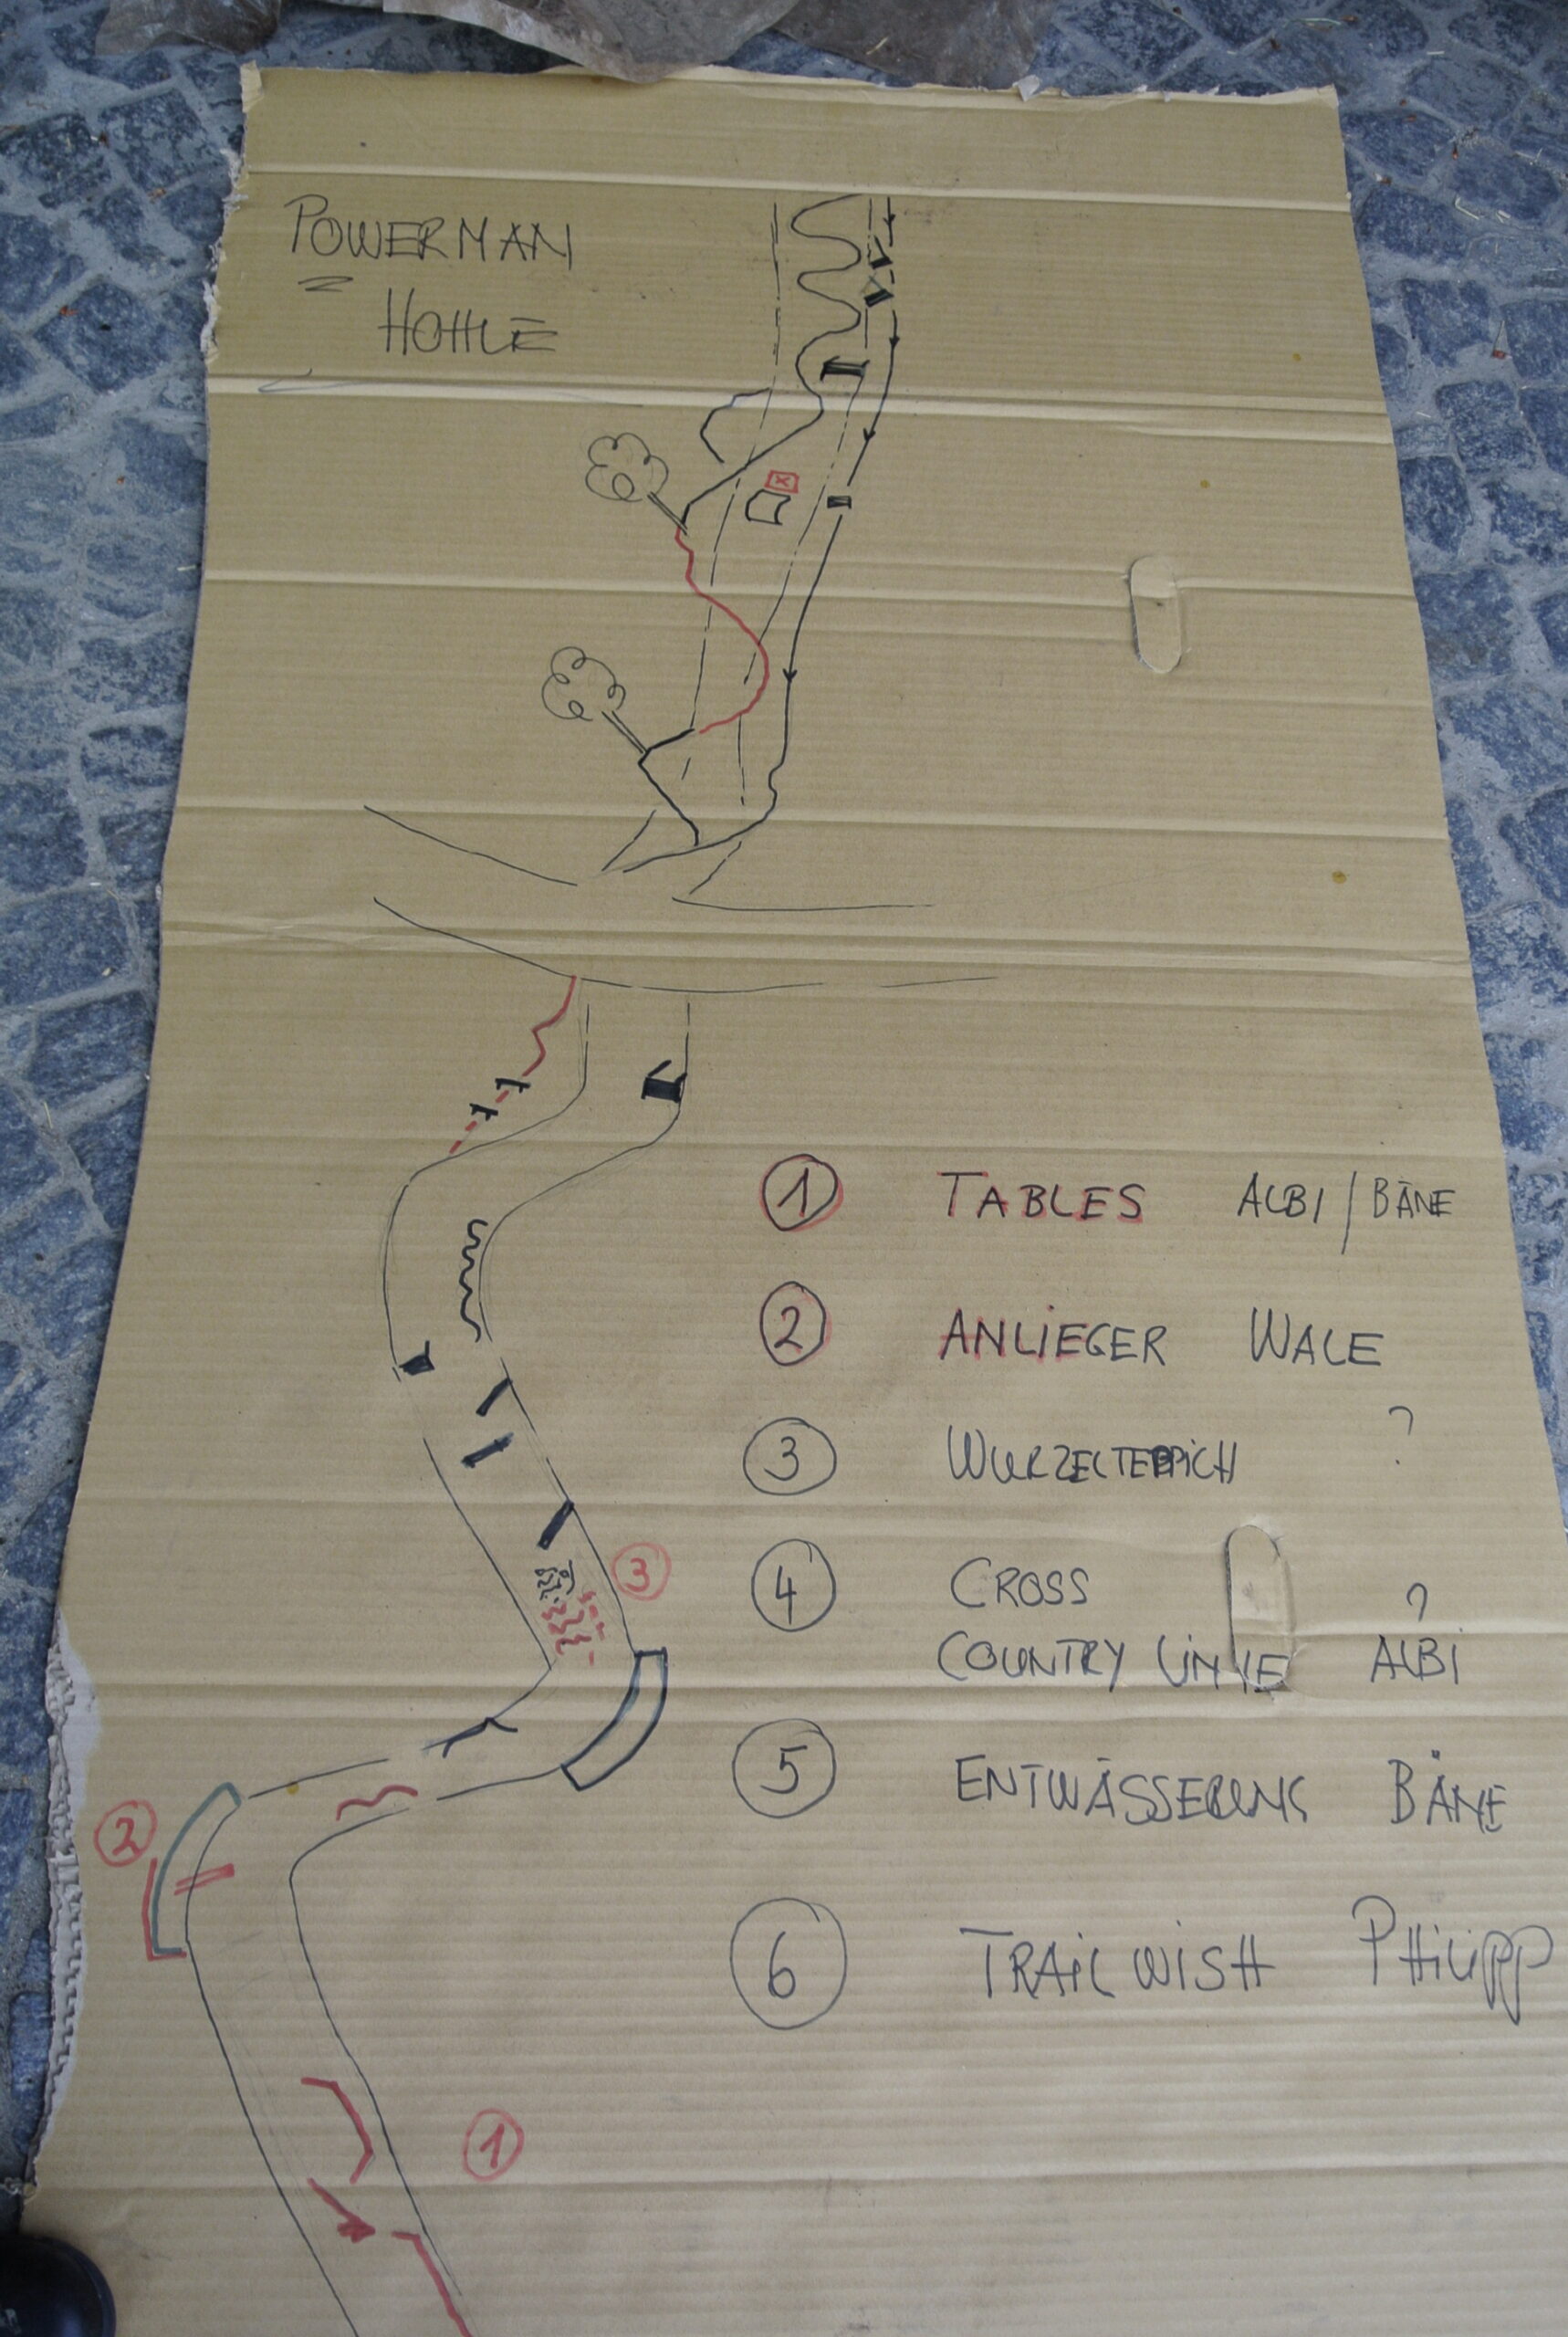 POWERMAN
HOHLE
① TABLES ALBI / BÄNE
② ANLIEGER WALE
③ WURZELTEPPICH ?
③
④ CROSS ?
COUNTRY LINIE ALBI
⑤ ENTWÄSSERUNG BÄNE
②
⑥ TRAIL WISH PHILIPP
①